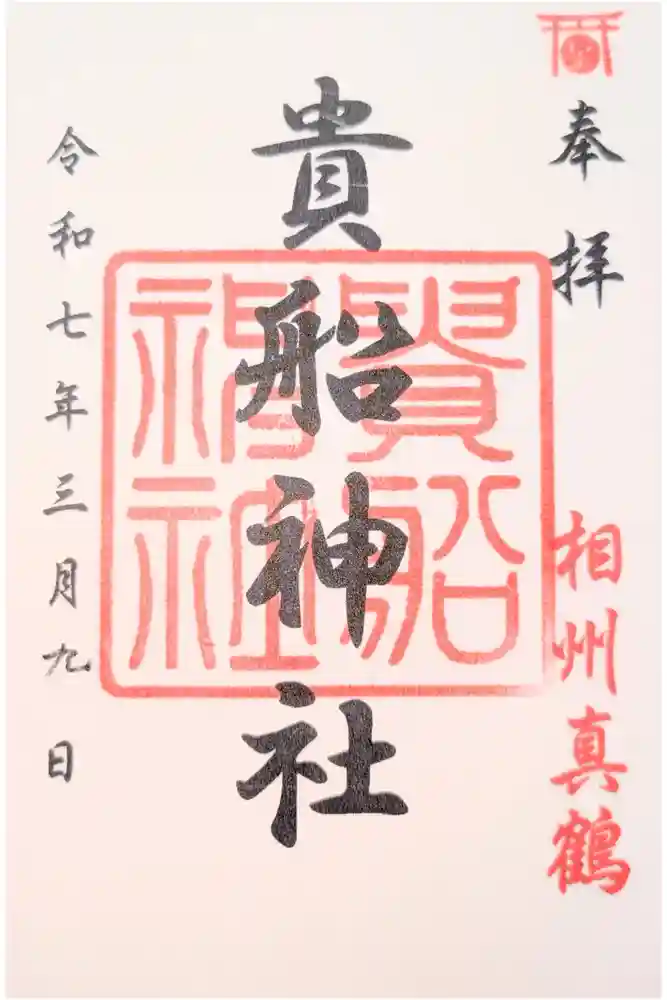 奉拝
相州真鶴
貴船神社
貴船神社
令和七年三月九日